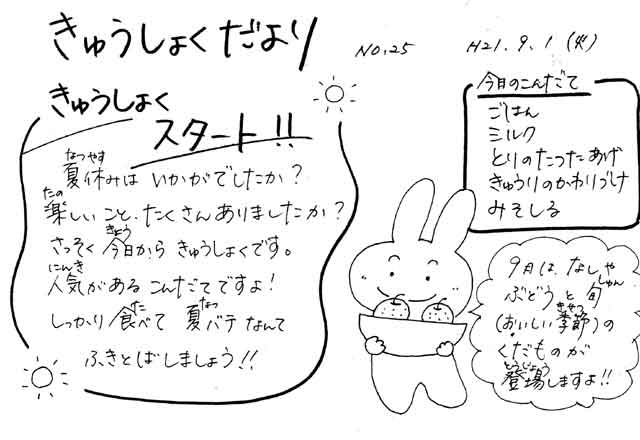 きゅうしょくだより
NO.25
H21.9.1(火)
きゅうしょく
スタート!!
夏休みは いかがでしたか?
楽しいこと、たくさんありましたか?
さっそく 今日から きゅうしょくです。
人気がある こんだてですよ!
しっかり 食べて 夏バテ なんて
ふきとばしましょう!!
今日のこんだて
ごはん
ミルク
とりのたつたあげ
きゅうりのかわりづけ
みそしる
9月は、なしや
ぶどうと 旬
(おいしい季節)の
くだものが
登場しますよ!!